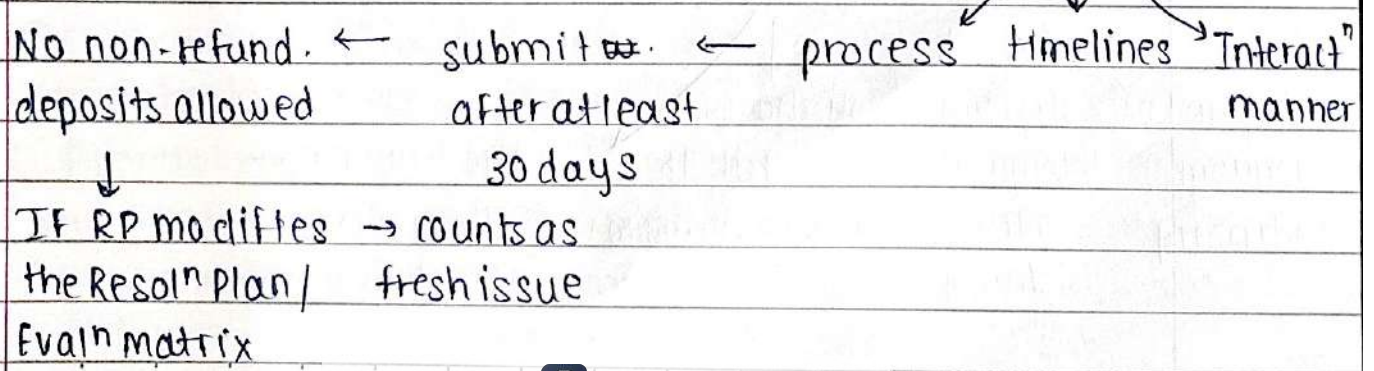 No non-refund. ← submit ← process timelines "Interactⁿ
deposits allowed after atleast manner
↓ 30 days
If RP modifies → counts as
the Resolⁿ Plan/ fresh issue
Evalⁿ matrix